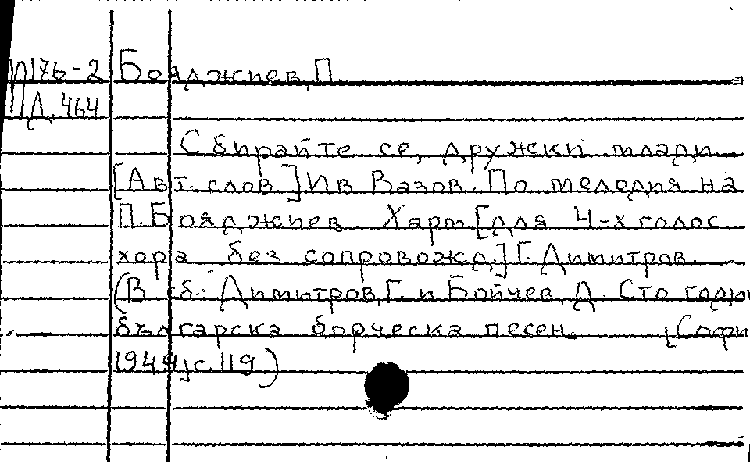 П176-2 Бояджиев, П.
ПД.464
Сбирайте се, дружки млади.
[Авт. слов] Ив Вазов. По мелодия на
П. Бояджиев Харм [для 4-х голос
хора без сопровожд.] Г. Димитров.
(В сб: Димитров, Г. и Бойчев, Д. Сто годин
българска борческа песен. [Софи
1944], с. 119)